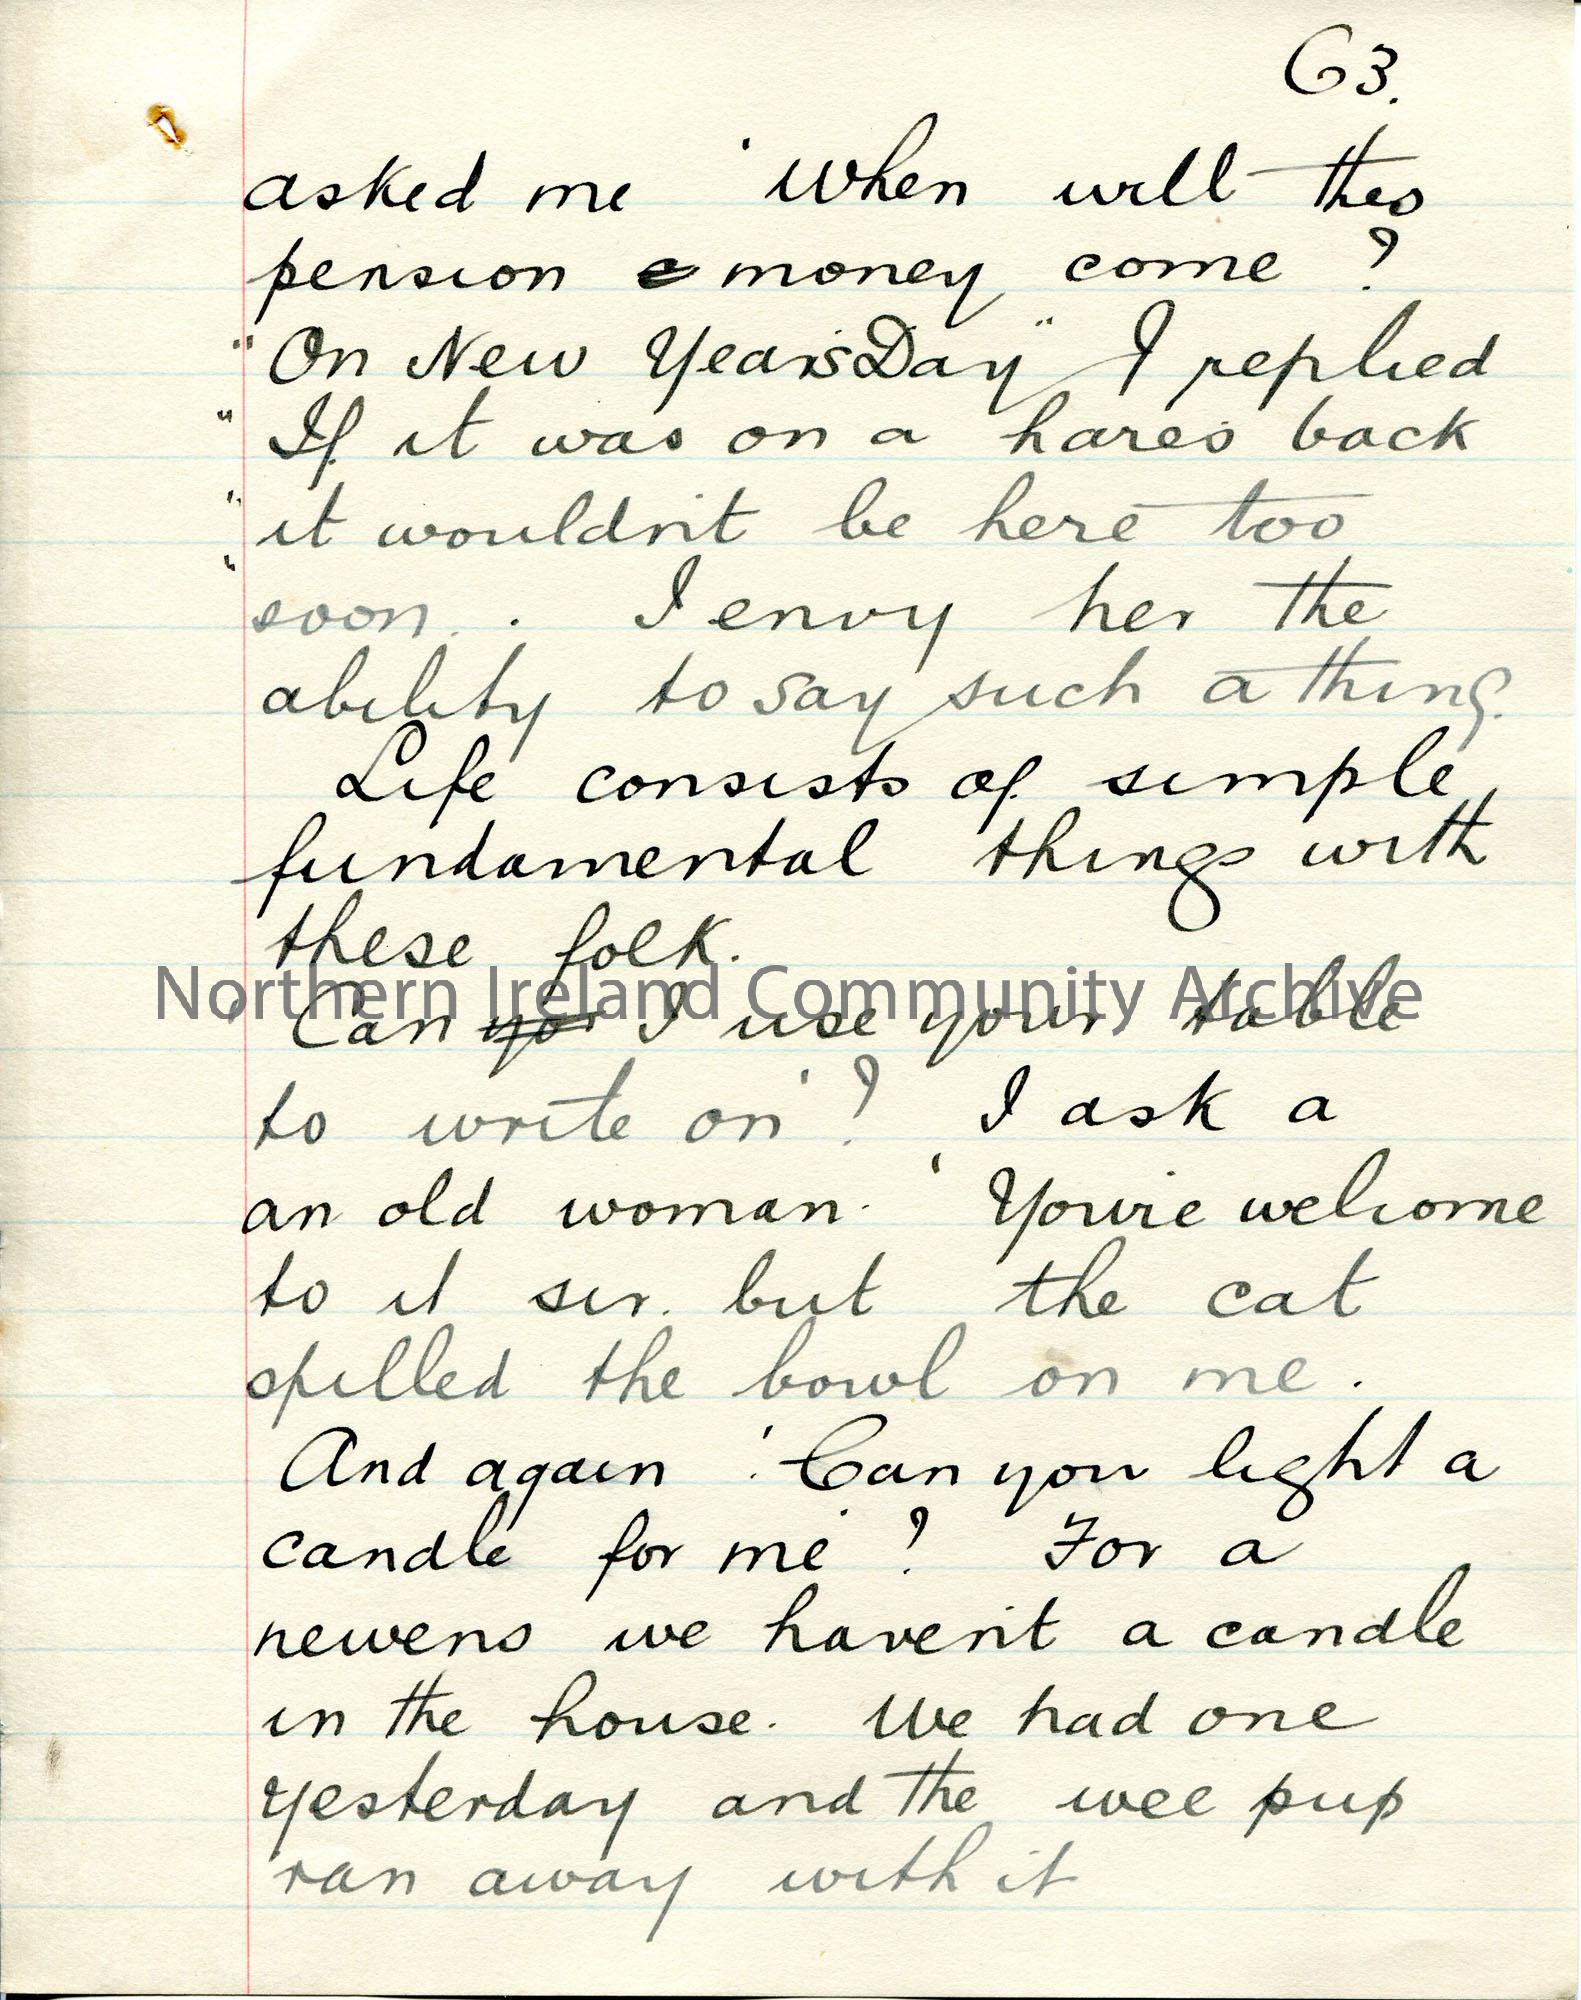 63.
asked me 'When will this
pension money come ?
"On New Year's Day" I replied
" If it was on a hare's back
" it wouldn't be here too
" soon. . I envy her the
ability to say such a thing.
Life consists of simple
fundamental things with
these folk.
Northern Ireland Community Archive
' Can yor I use your table
to write on' ? I ask a
an old woman. ' You're welcome
to it sir. but the cat
spilled the bowl on me .
And again '. Can you light a
candle for me' ? For a
newens we haven't a candle
in the house. We had one
yesterday and the wee pup
ran away with it